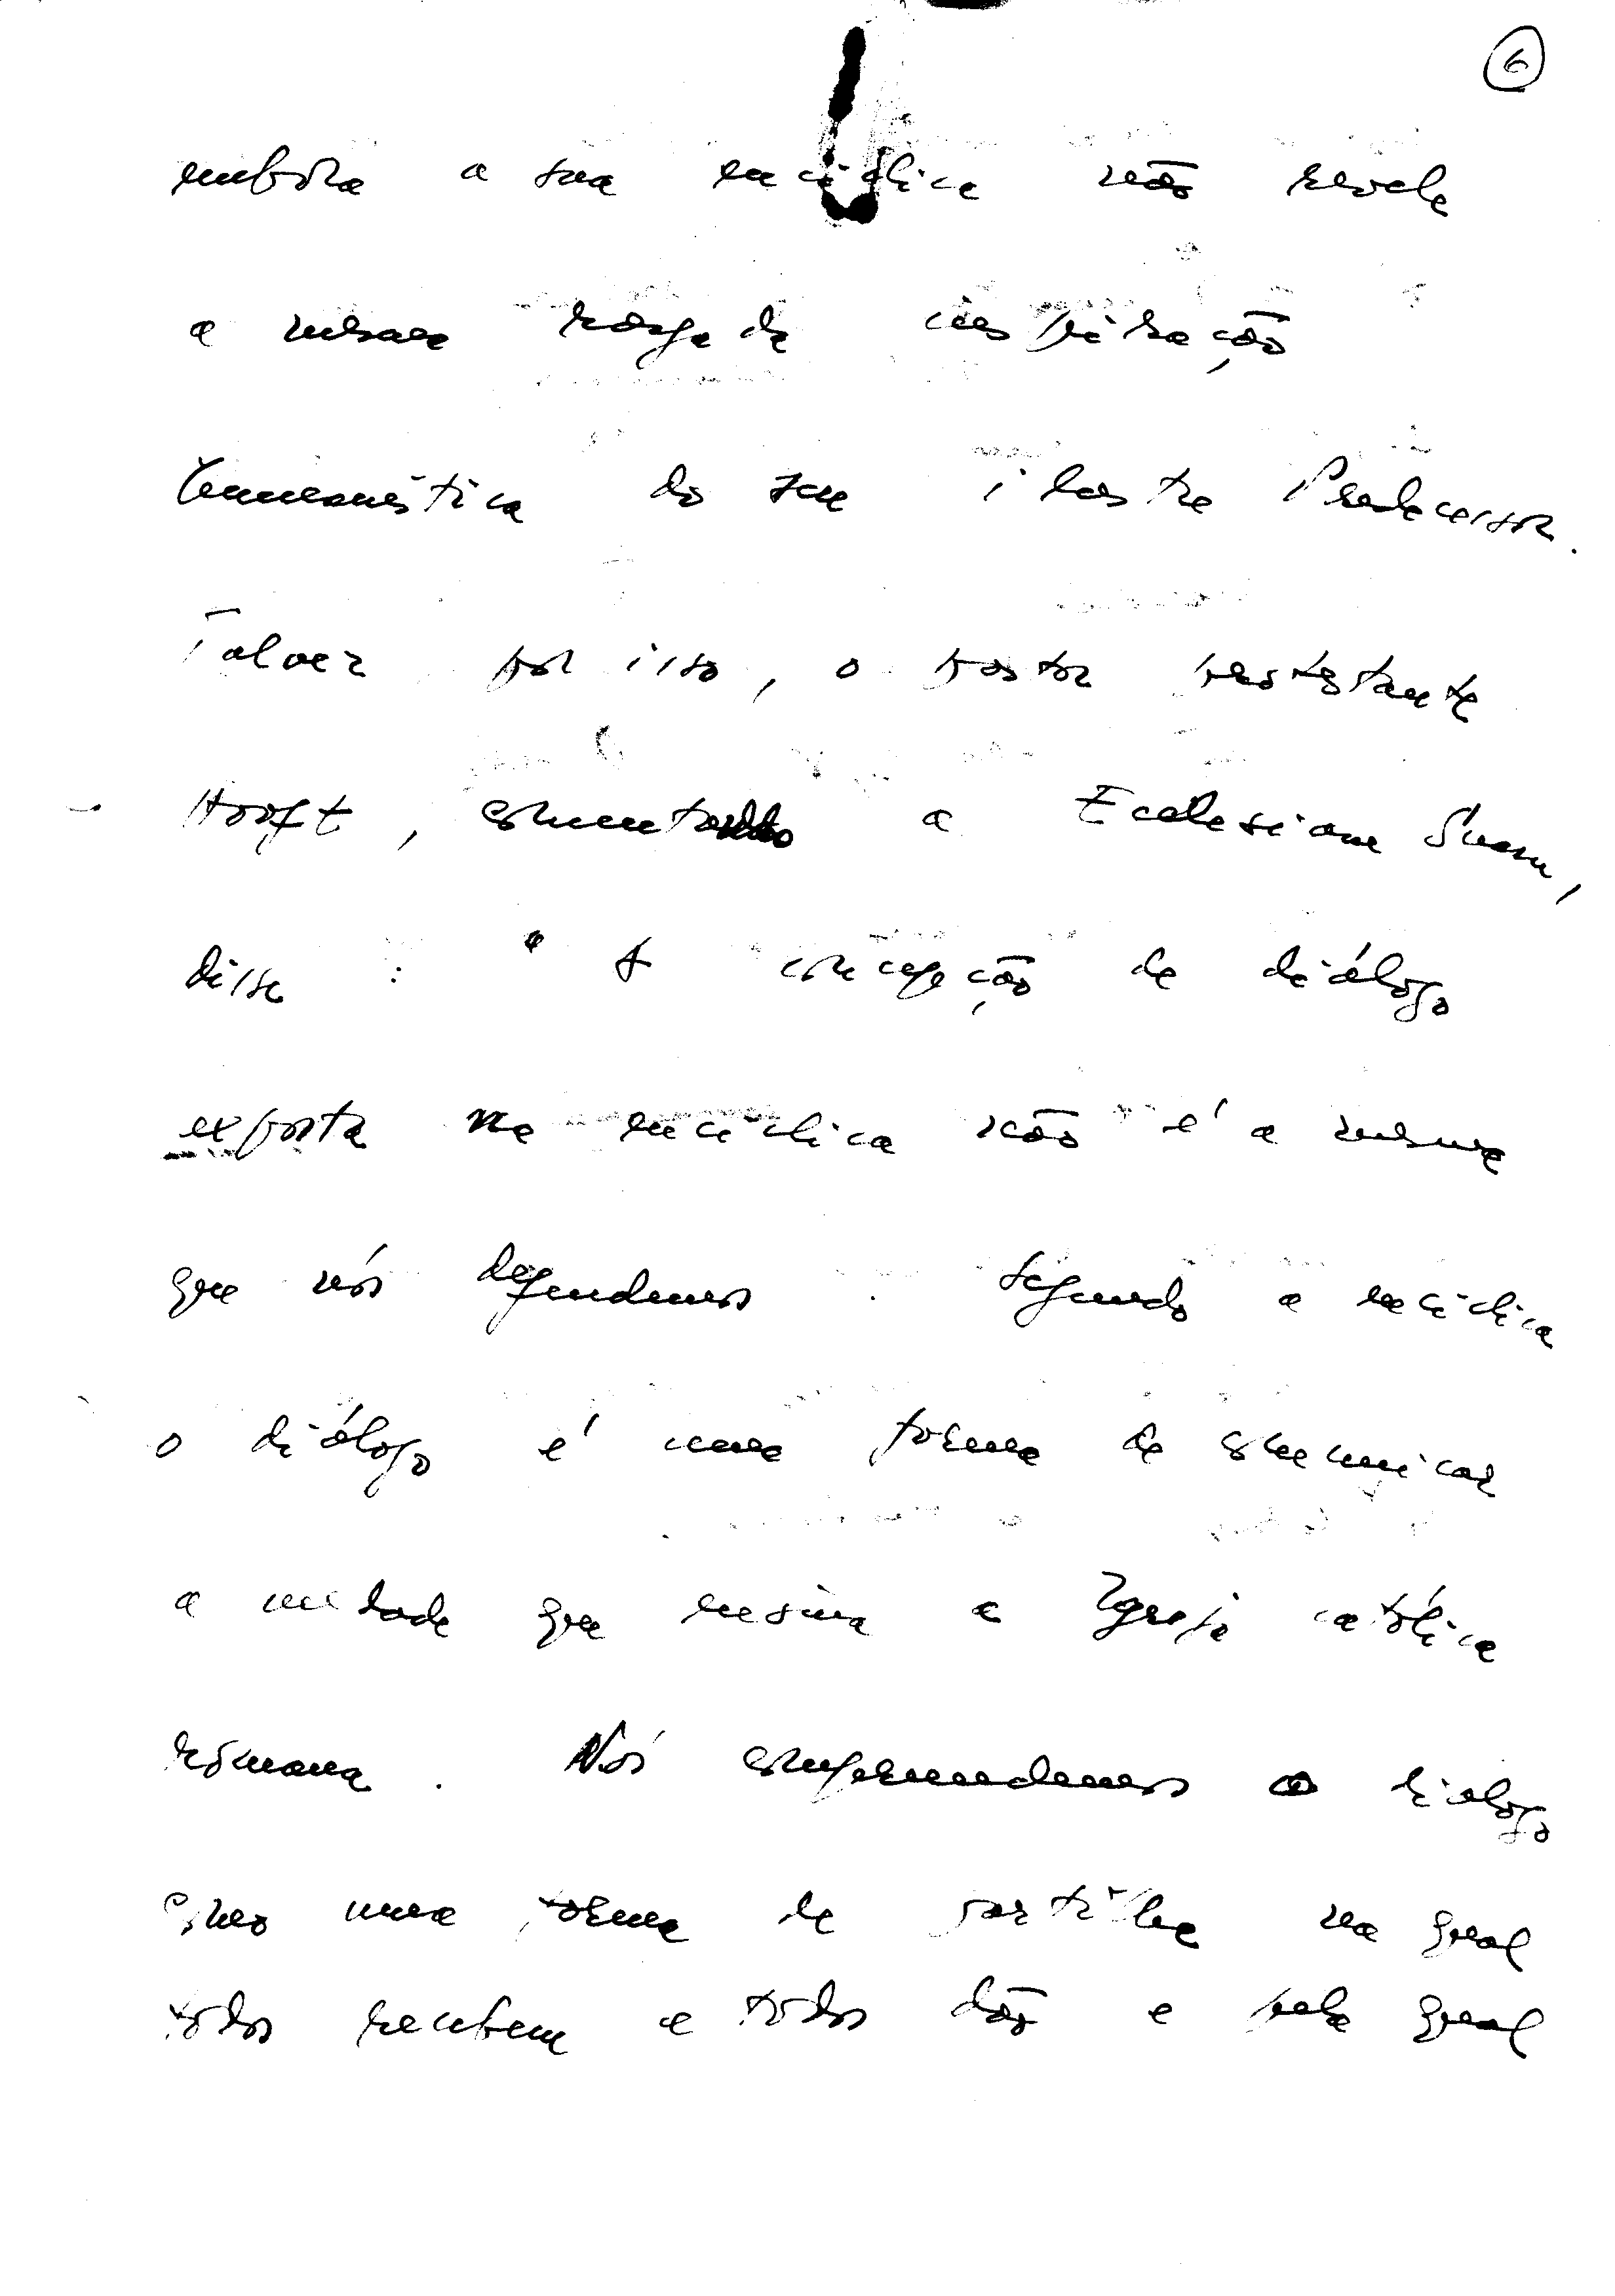 6
embora a sua encíclica não revele
a mesma rasgada inspiração
ecumenística do seu ilustre Predecessor.
Talvez por isso, o pastor protestante
Hooft, comentando a Ecclesiam Suam,
disse : " A concepção de diálogo
exposta na encíclica não é a mesma
que nós defendemos. Segundo a encíclica
o diálogo é uma forma de comunicar
a verdade que ensina a Igreja católica
romana. Nós compreendemos o dialogo
como uma forma de partilha na qual
todos recebem e todos dão e pela qual